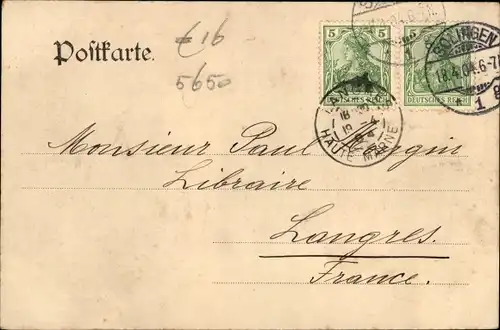 Postkarte.
€16
5650
5 5
DEUTSCHES REICH DEUTSCHES REICH
SOLINGEN
18.4.04.6-7
1
HAUTE MARNE
Monsieur Paul
Libraire
Langres.
France.